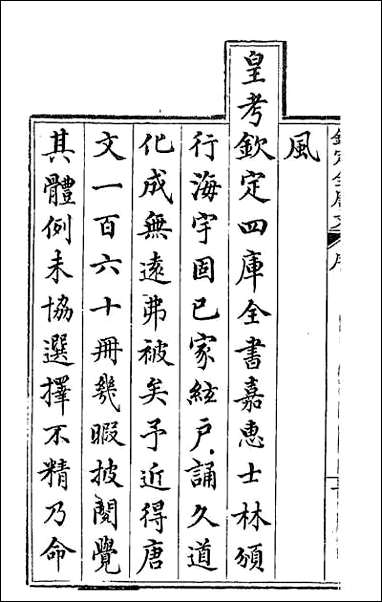 風
皇考欽定四庫全書嘉惠士林頒
行海宇固已家絃戶誦久道
化成無遠弗被矣予近得唐
文一百六十冊幾暇披閱覺
其體例未協選擇不精乃命